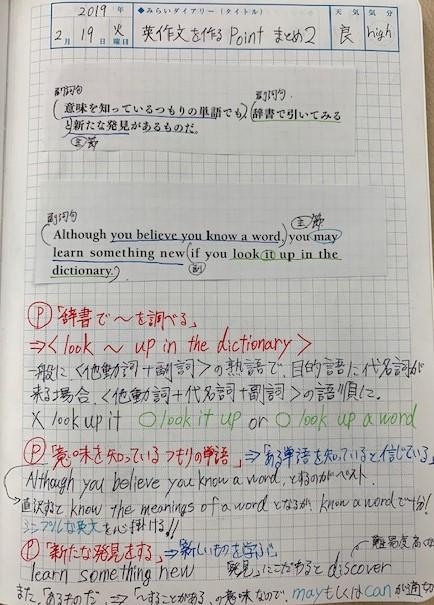 2019年 ◆みらいダイアリー(タイトル) 天気 気分
2月 19日 火曜日 英作文を作るPoint まとめ2 良 high
副詞句 副詞句
(意味を知っているつもりの単語でも)、(辞書で引いてみる
と)新たな発見があるものだ。
主節
副詞句 主節
(Although you believe you know a word,) you may
learn something new (if you look it up in the
dictionary.)
副
Ⓟ「辞書で〜を調べる」
⇒<look 〜 up in the dictionary>
一般に、<他動詞+副詞>の熟語で、目的語に代名詞が
来る場合、<他動詞+代名詞+副詞>の語順に。
× look up it ○ look it up or ○ look up a word
Ⓟ「意味を知っているつもりの単語」⇒「ある単語を知っていると信じている」
Although you believe you know a word, とするのがベスト.
直訳すると know the meanings of a word となるが、know a wordで十分!
シンプルな英文を心掛ける!!
Ⓟ「新たな発見をする」⇒「新しいものを学ぶ」 難易度高くな
learn something new 「発見」にこだわると discover
また、「あるものだ」⇒「〜することがある」の意味なので、mayもしくはcanが適切